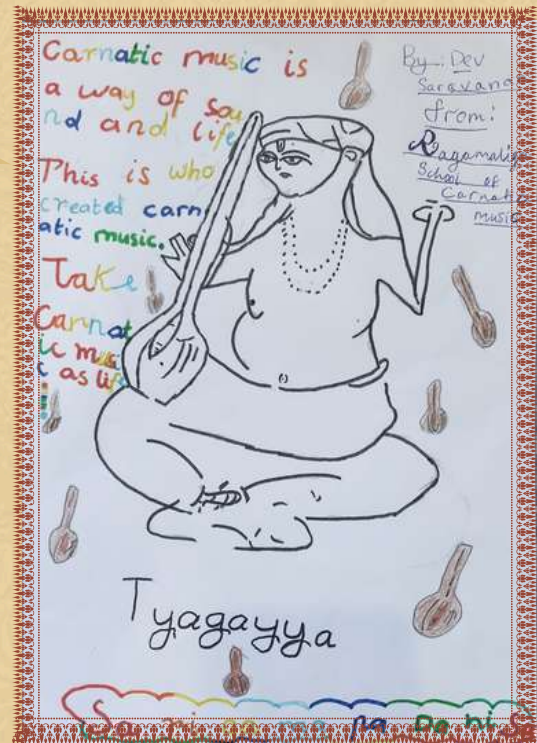 Carnatic music is
a way of sou
nd and life
This is who
created carn
atic music.
Take
Carnat
ic musi
c as life
By: Dev
Saravana
from:
Ragamalika
School of
Carnatic
music
Tyagayya
Sa ri ga ma pa Da ni Sa